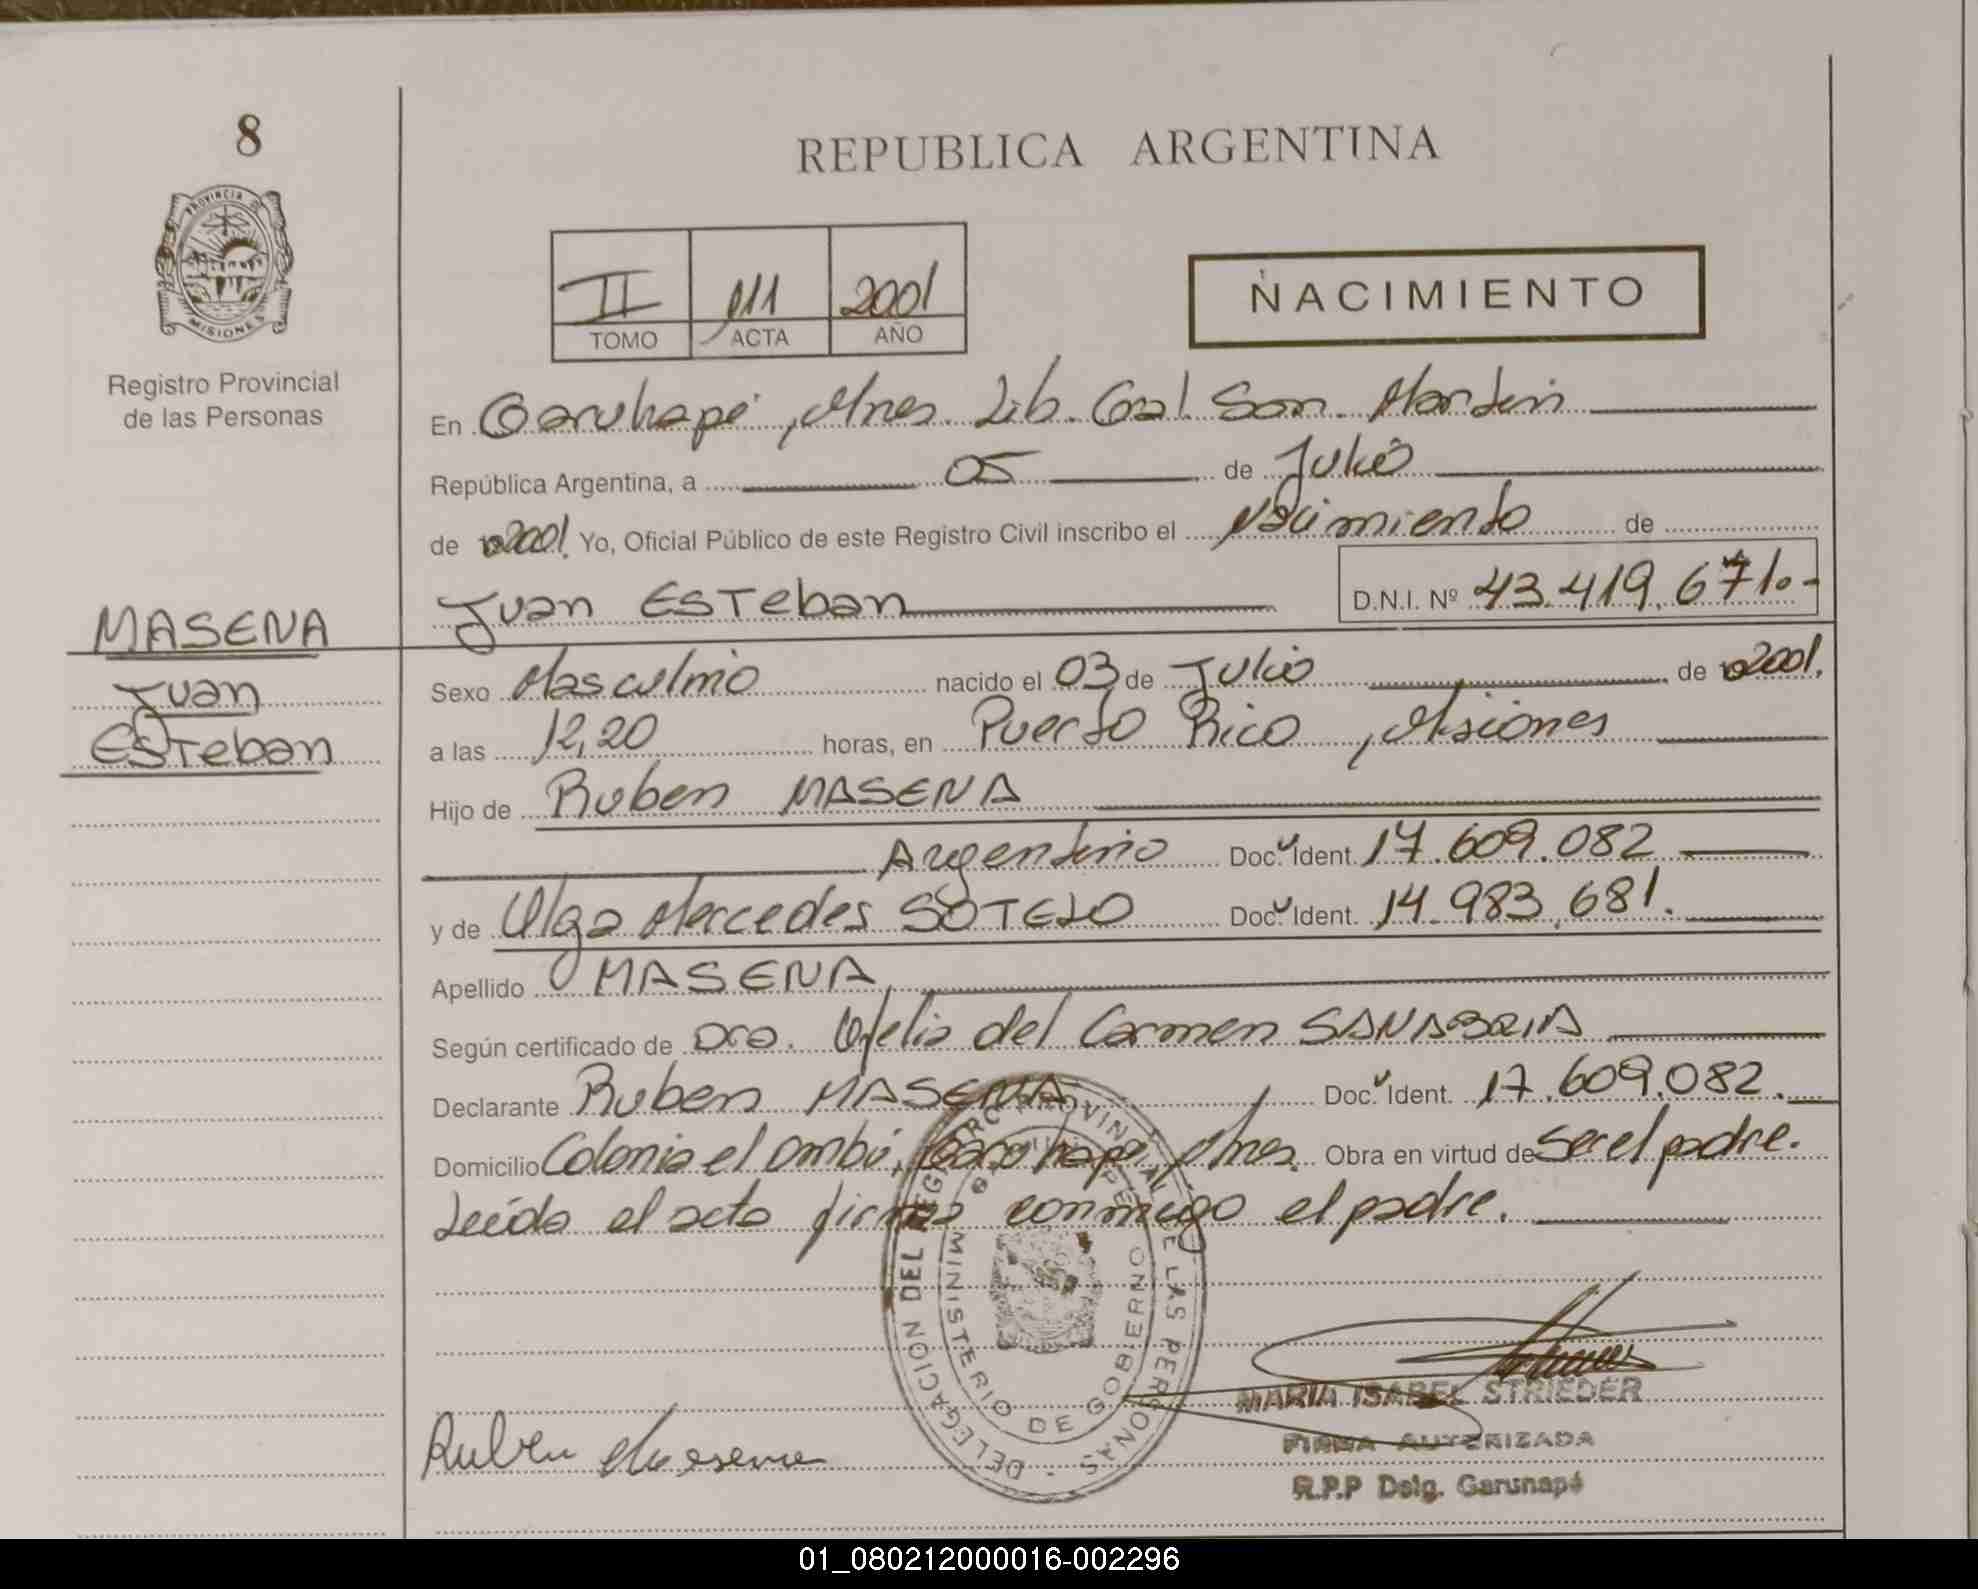 8
REPUBLICA ARGENTINA
PROVINCIA DE
MISIONES
Registro Provincial
de las Personas
II 111 2001
TOMO ACTA AÑO
NACIMIENTO
En Garuhapé, Mnes. Lib. Gral. San Martin
República Argentina, a 05 de Julio
de 2001. Yo, Oficial Público de este Registro Civil inscribo el Nacimiento de
Juan ESTeban D.N.I. Nº 43.419.671.-
MASENA
Juan
ESTeban
Sexo Masculino nacido el 03 de Julio de 2001.
a las 12,20 horas, en Puerto Rico, Misiones
Hijo de Ruben MASENA
Argentino Doc. Ident. 17.609.082
y de Olga Mercedes SOTELO Doc. Ident. 14.983.681.
Apellido MASENA
Según certificado de Dra. Ofelia del Carmen SANABRIA
Declarante Ruben MASENA Doc. Ident. 17.609.082.
Domicilio Colonia el Ombú, Garuhapé, Mnes. Obra en virtud de Ser el padre.
Leída el acta firma conmigo el padre.
DELEGACION DEL REGISTRO PROVINCIAL DE LAS PERSONAS
MINISTERIO DE GOBIERNO
MARIA ISABEL STRIEDER
FIRMA AUTORIZADA
R.P.P Delg. Garuhapé
Ruben Masena
01_080212000016-002296